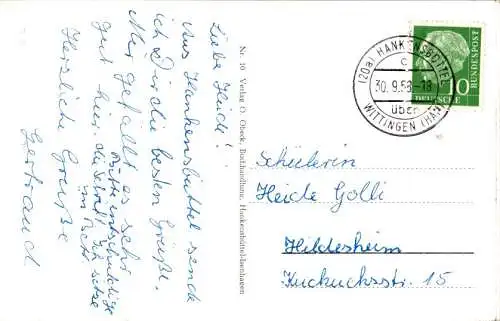 Liebe Heide!
Aus Hankensbüttel sende
ich Dir die besten Grüße.
Mir gefällt es sehr
gut hier.
Bitte entschuldige
die Schrift, ich sitze
im Bett.
Herzliche Grüße
Gertraud
Nr. 10 Verlag O. Obeck, Buchhandlung, Hankensbüttel-Isenhagen
(20a) HANKENSBÜTTEL
c
30.9.58-18
über
WITTINGEN (HAN)
DEUTSCHE
BUNDESPOST
10
Schülerin
Heide Golli
Hildesheim
Kuckucksstr. 15